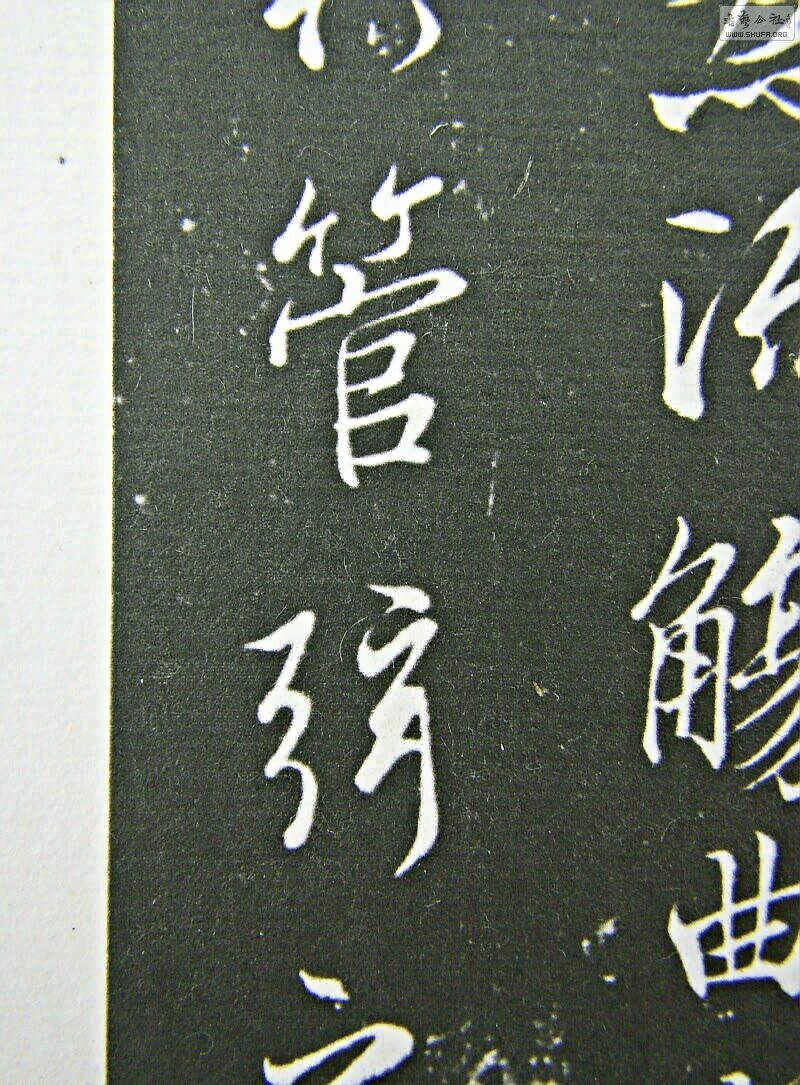 為流觴曲
管弦之
書藝公社
WWW.SHUFA.ORG